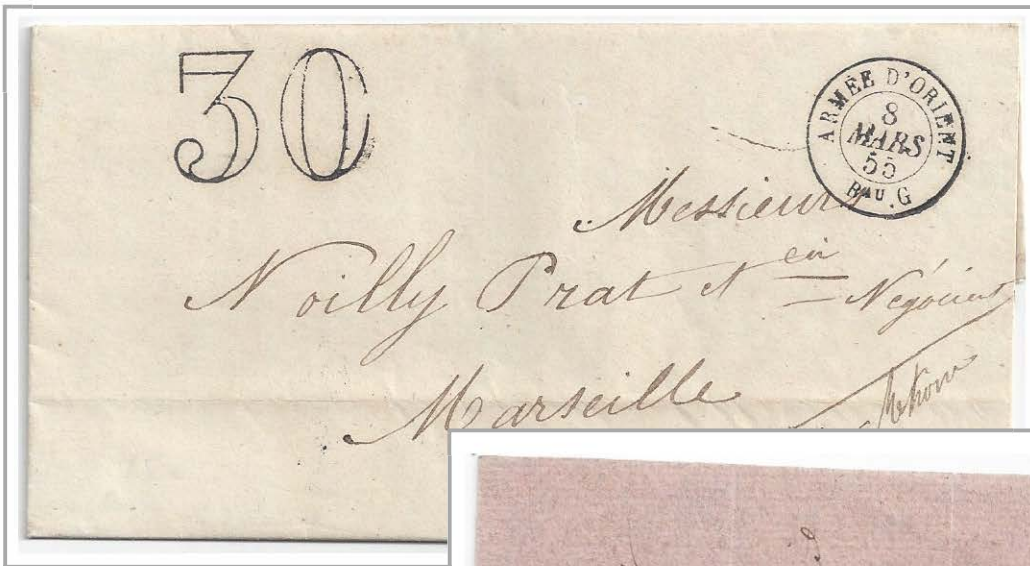 30
ARMÉE D'ORIENT
8
MARS
55
BAU.G
Messieurs
Noilly Prat et Cie
Négociant
Marseille